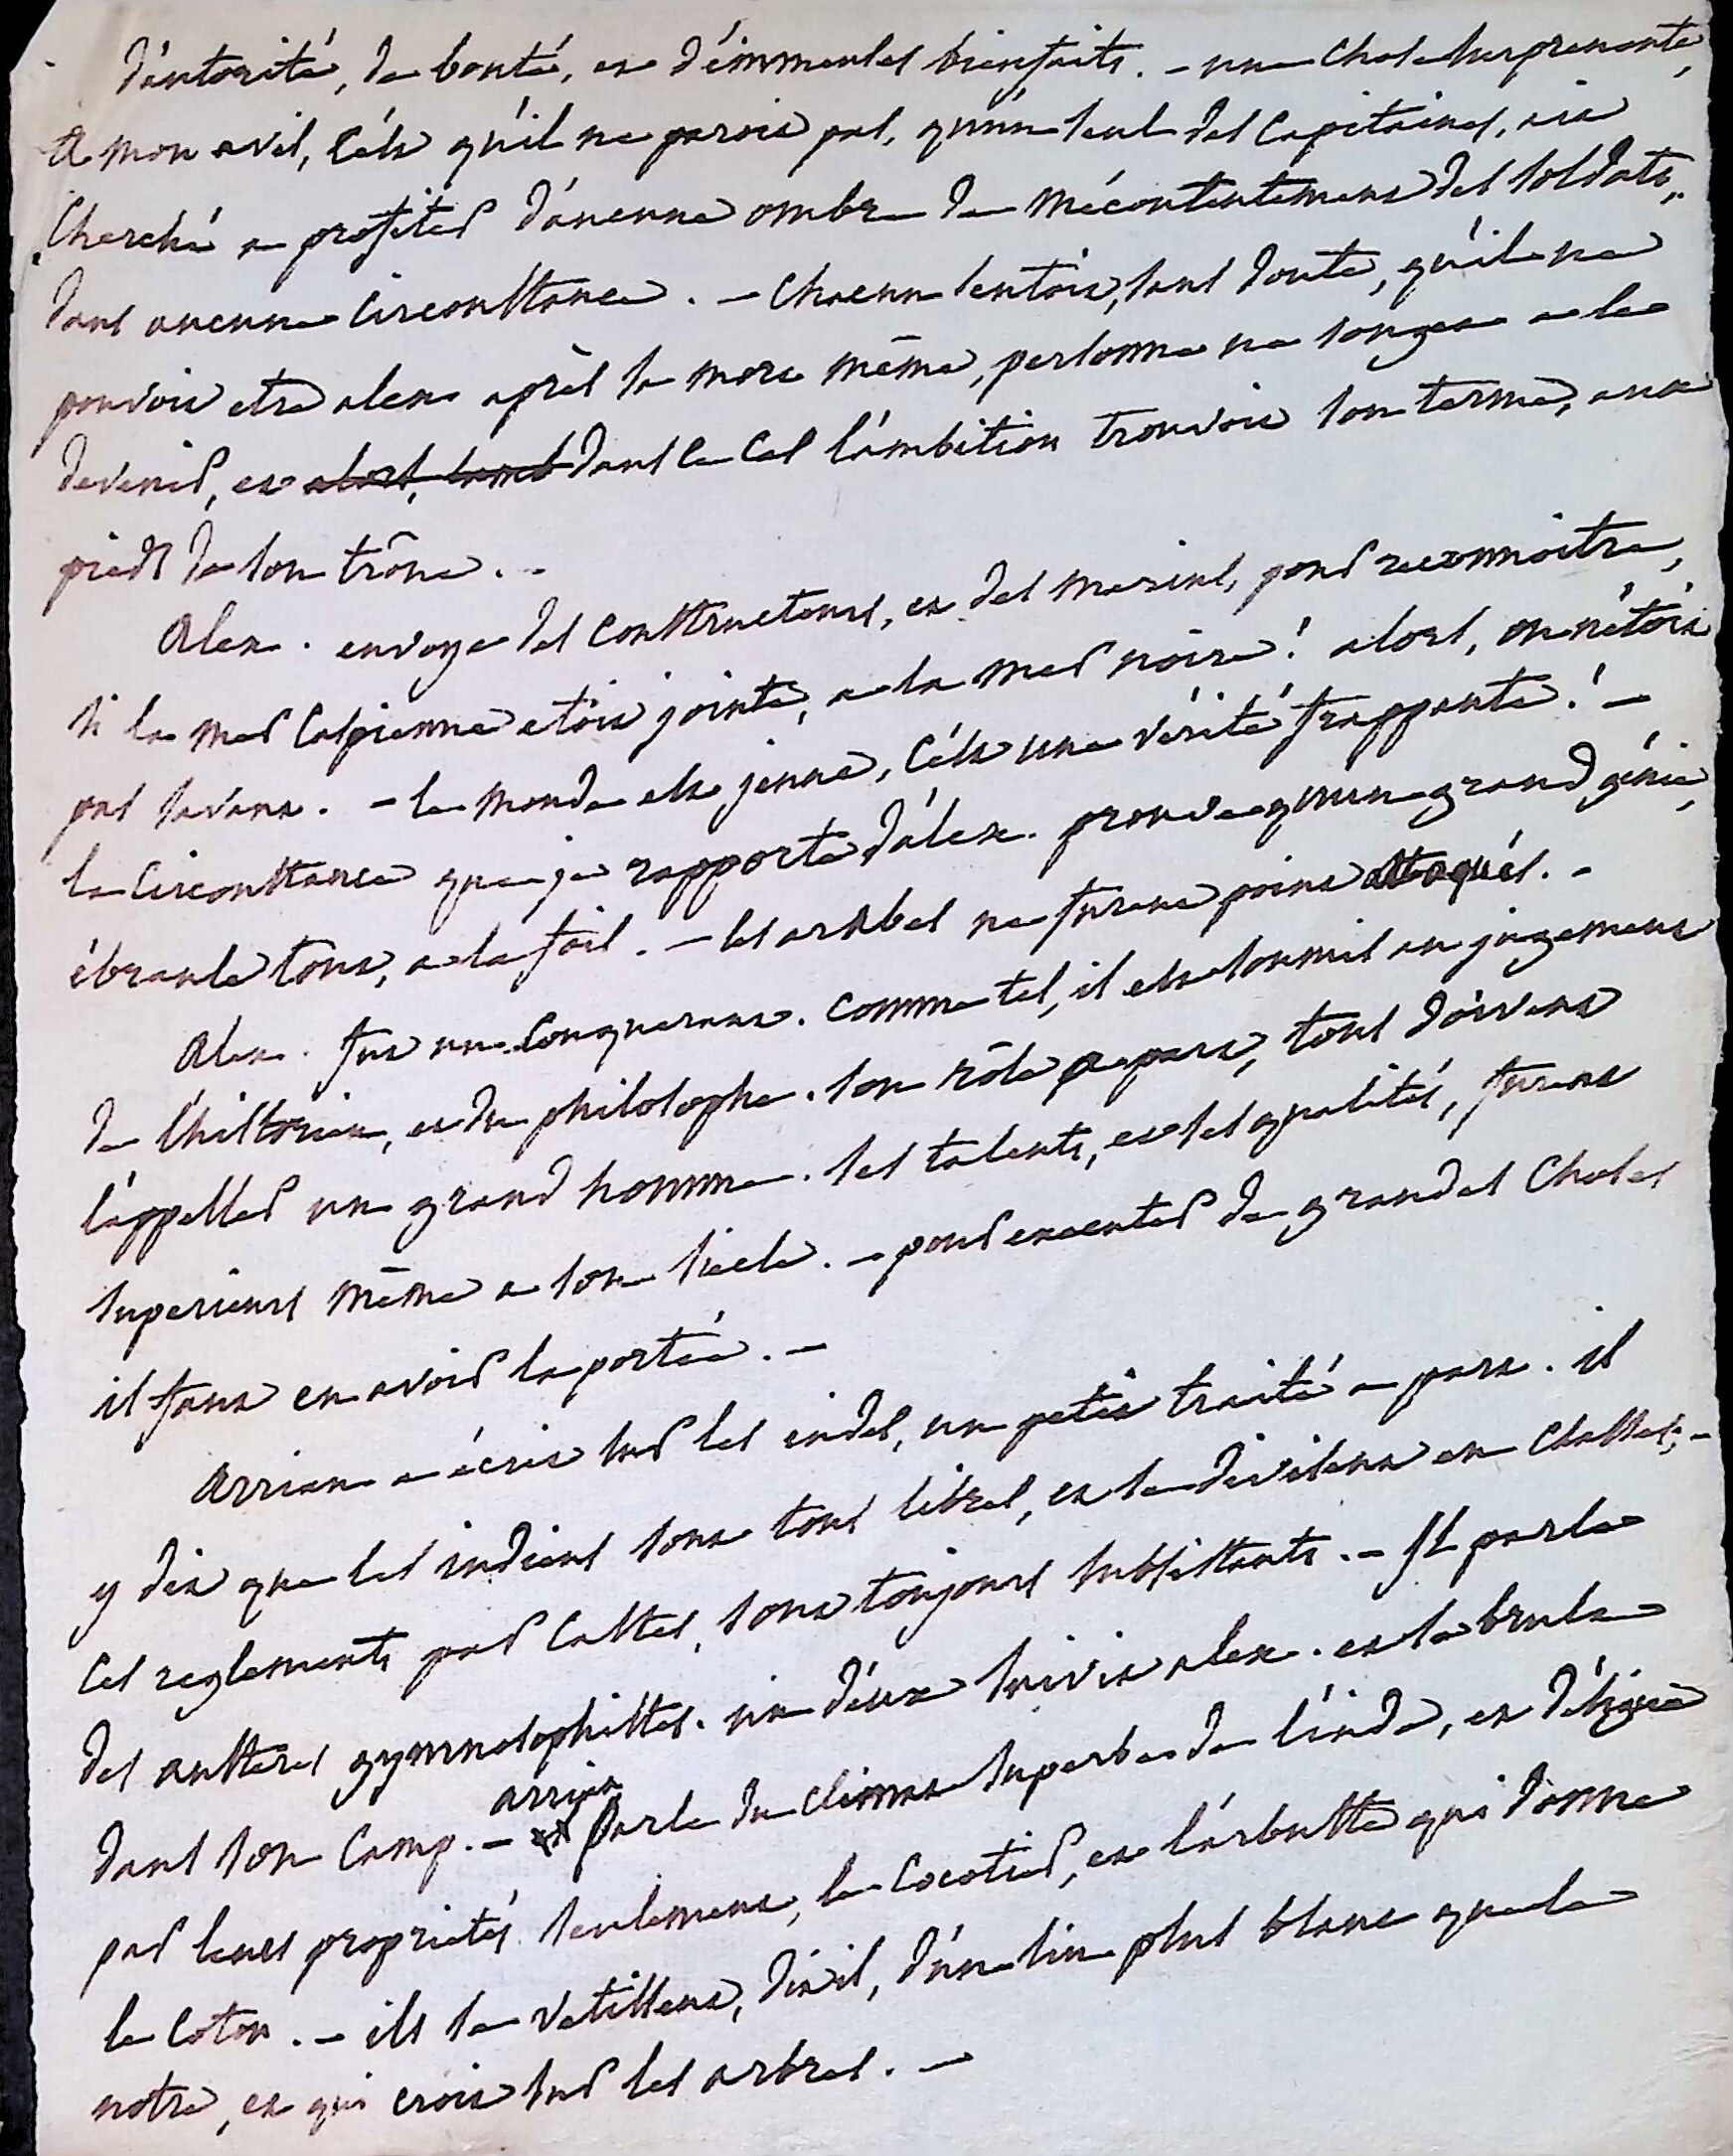 d'autorité, de bonté, et d'immenses bienfaits. - une chose surprenante,
a mon avis, c'est qu'il ne paroit pas, qu'un seul des capitaines, ait
cherché a profiter d'aucune ombre de mécontentement des soldats,
dans aucune circonstance. - chacun sentoit, sans doute, qu'il ne
pouvoit etre alex. après sa mort même, personne ne songea a le
devenir, et alors, dans ce cas l'ambition trouvoit son terme, aux
pieds de son trône. -
Alex. envoya des constructeurs, et des marins, pour reconnoitre,
si la mer Caspienne etoit jointe, a la mer noire! alors, on n'étoit
pas savant. - le monde est jeune, c'est une vérité frappante! -
la circonstance que je rapporte d'alex. prouve qu'un grand génie,
ébranle tout, a la fois. - les arabes ne furent point attaqués. -
Alex. fut un conquerant. comme tel, il est soumis au jugement
de l'historien, et du philosophe. son rôle a part, tous doivent
l'appeller un grand homme. ses talents, et ses qualités, furent
superieurs même a son siecle. - pour executer de grandes choses
il faut en avoir la portée. -
Arrien a écrit sur les indes, un petit traité a part. il
y dit que les indiens sont tous libres, et se divisent en classes; -
ces reglements par castes, sont toujours subsistants. - Il parle
des austeres gymnosophistes. un d'eux suivit alex. et se brula
dans son camp. - arrien parle du climat superbe de l'inde, et désigne
par leurs propriétés seulement, le cocotier, et l'arbuste qui donne
le coton. - ils se vetissent, dit-il, d'un lin plus blanc que le
notre, et qui croit sur les arbres. -